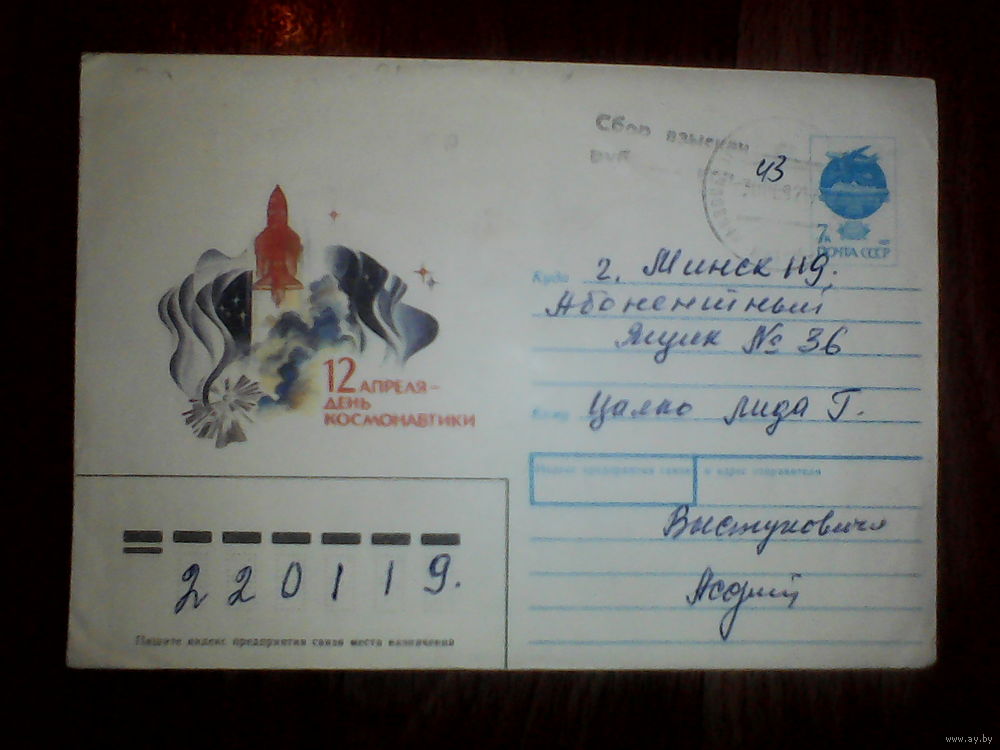 Сбор взыскан
руб
43
7к
ПОЧТА СССР
Куда г. Минск 119.
Абонентный
Ящик № 36
Кому Цалко Лида Г.
12 АПРЕЛЯ –
ДЕНЬ
КОСМОНАВТИКИ
Индекс предприятия связи и адрес отправителя
220119.
Пишите индекс предприятия связи места назначения
www.ay.by